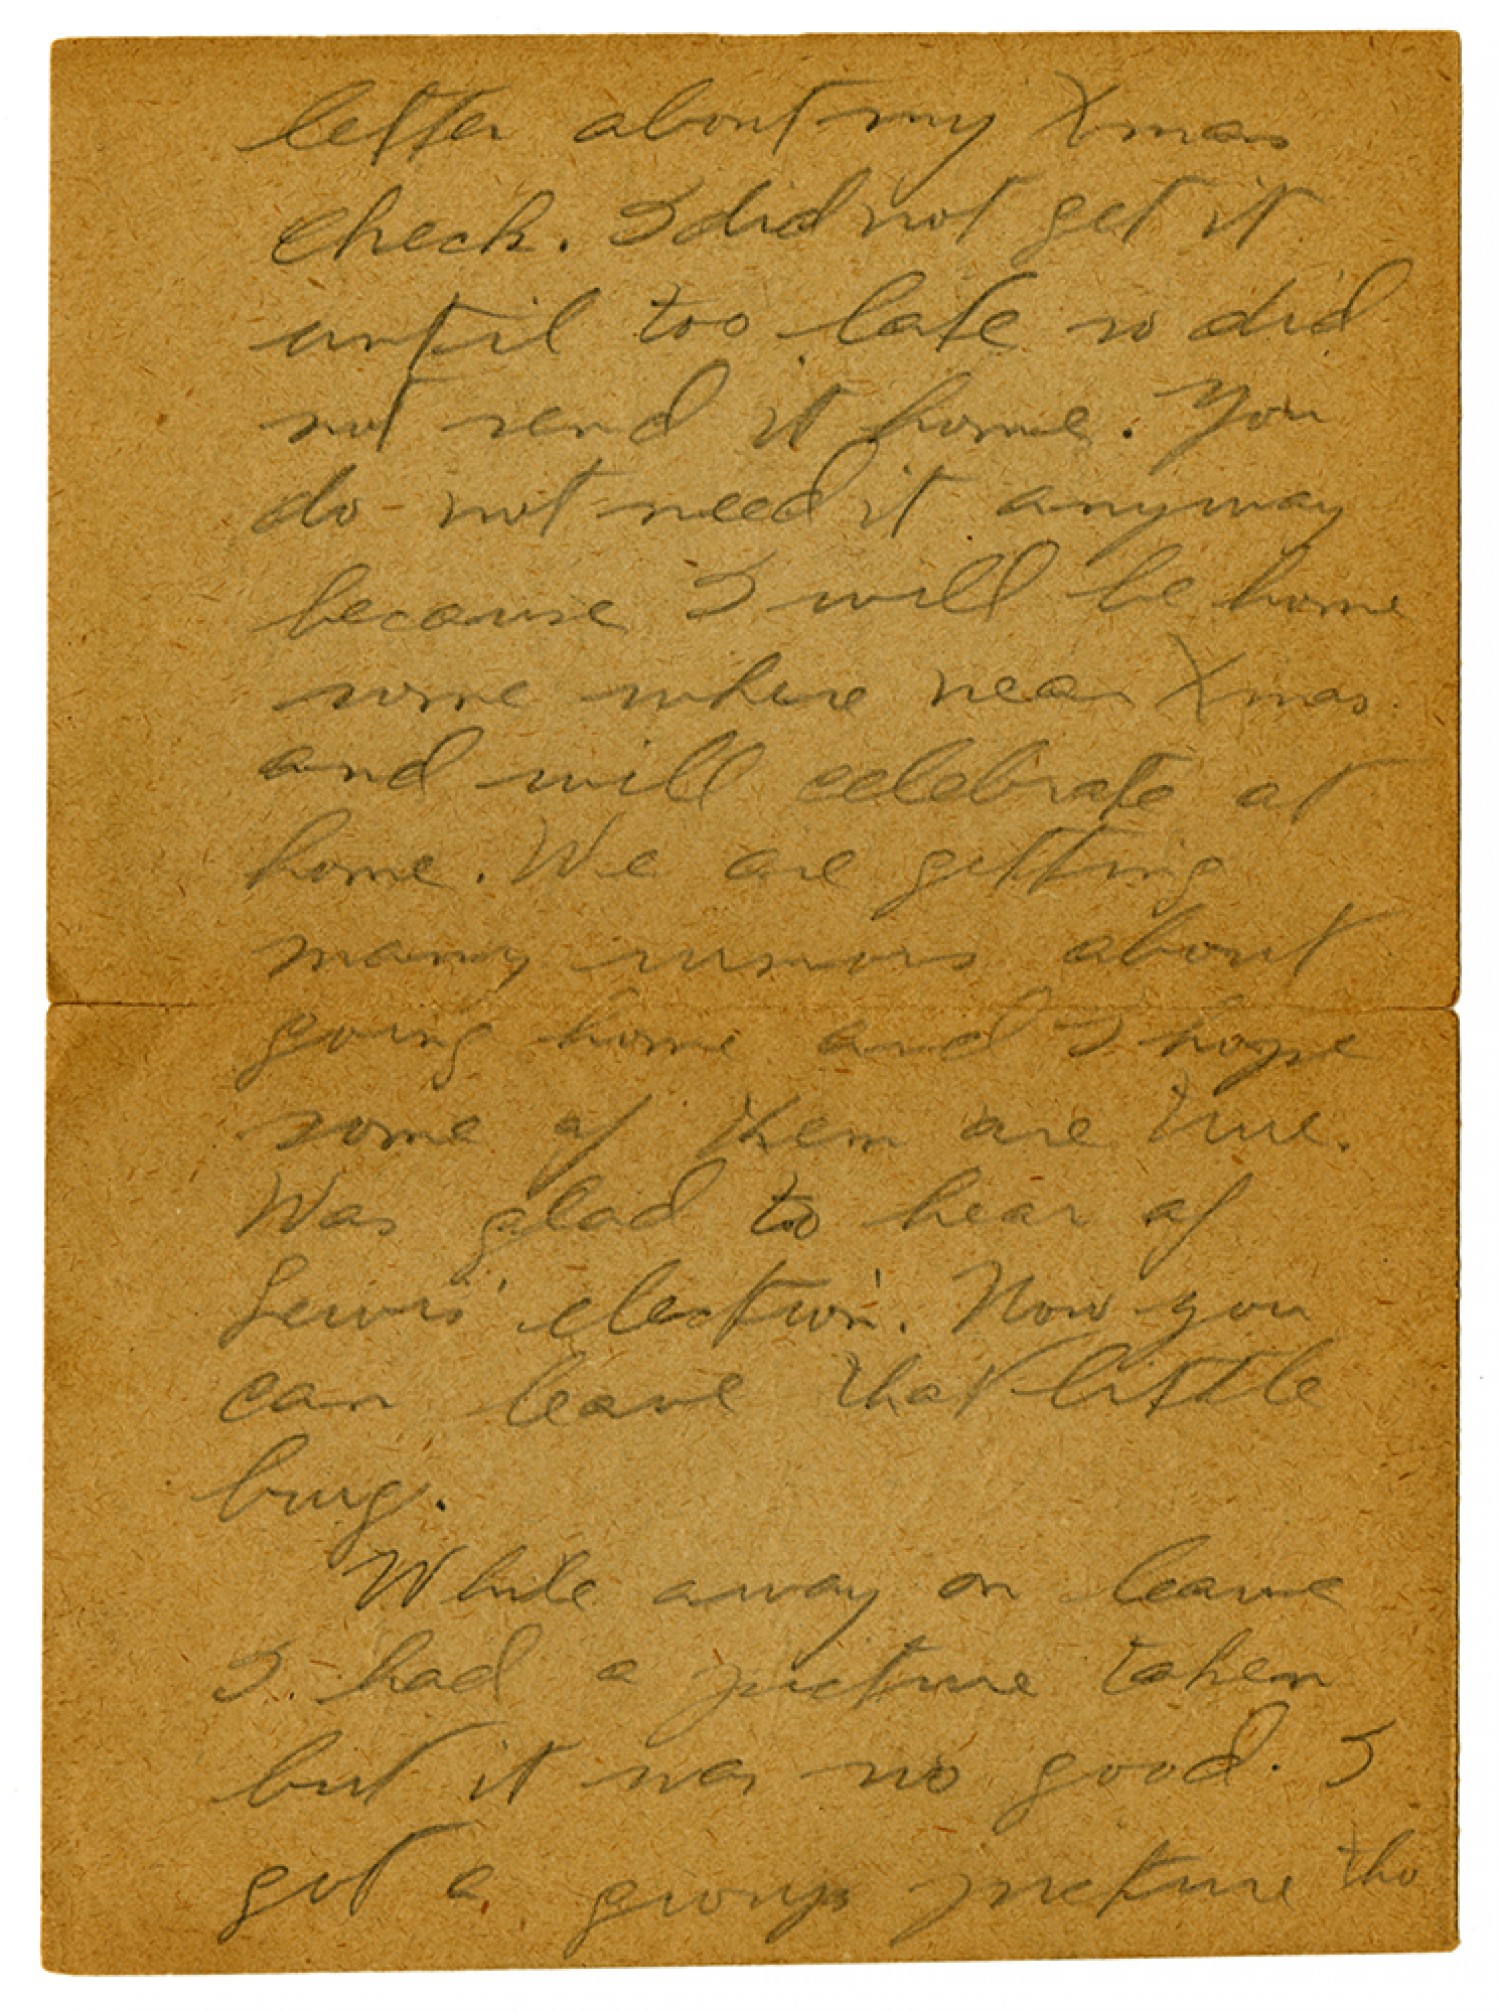 letter about my Xmas
check. I did not get it
until too late so did
not send it home. You
do not need it anyway
because I will be home
some where near Xmas
and will celebrate at
home. We are getting
many rumors about
going home and I hope
some of them are true.
Was glad to hear of
Lewis' election. Now you
can leave that little
burg.
While away on leave
I had a picture taken
but it was no good. I
got a group picture tho